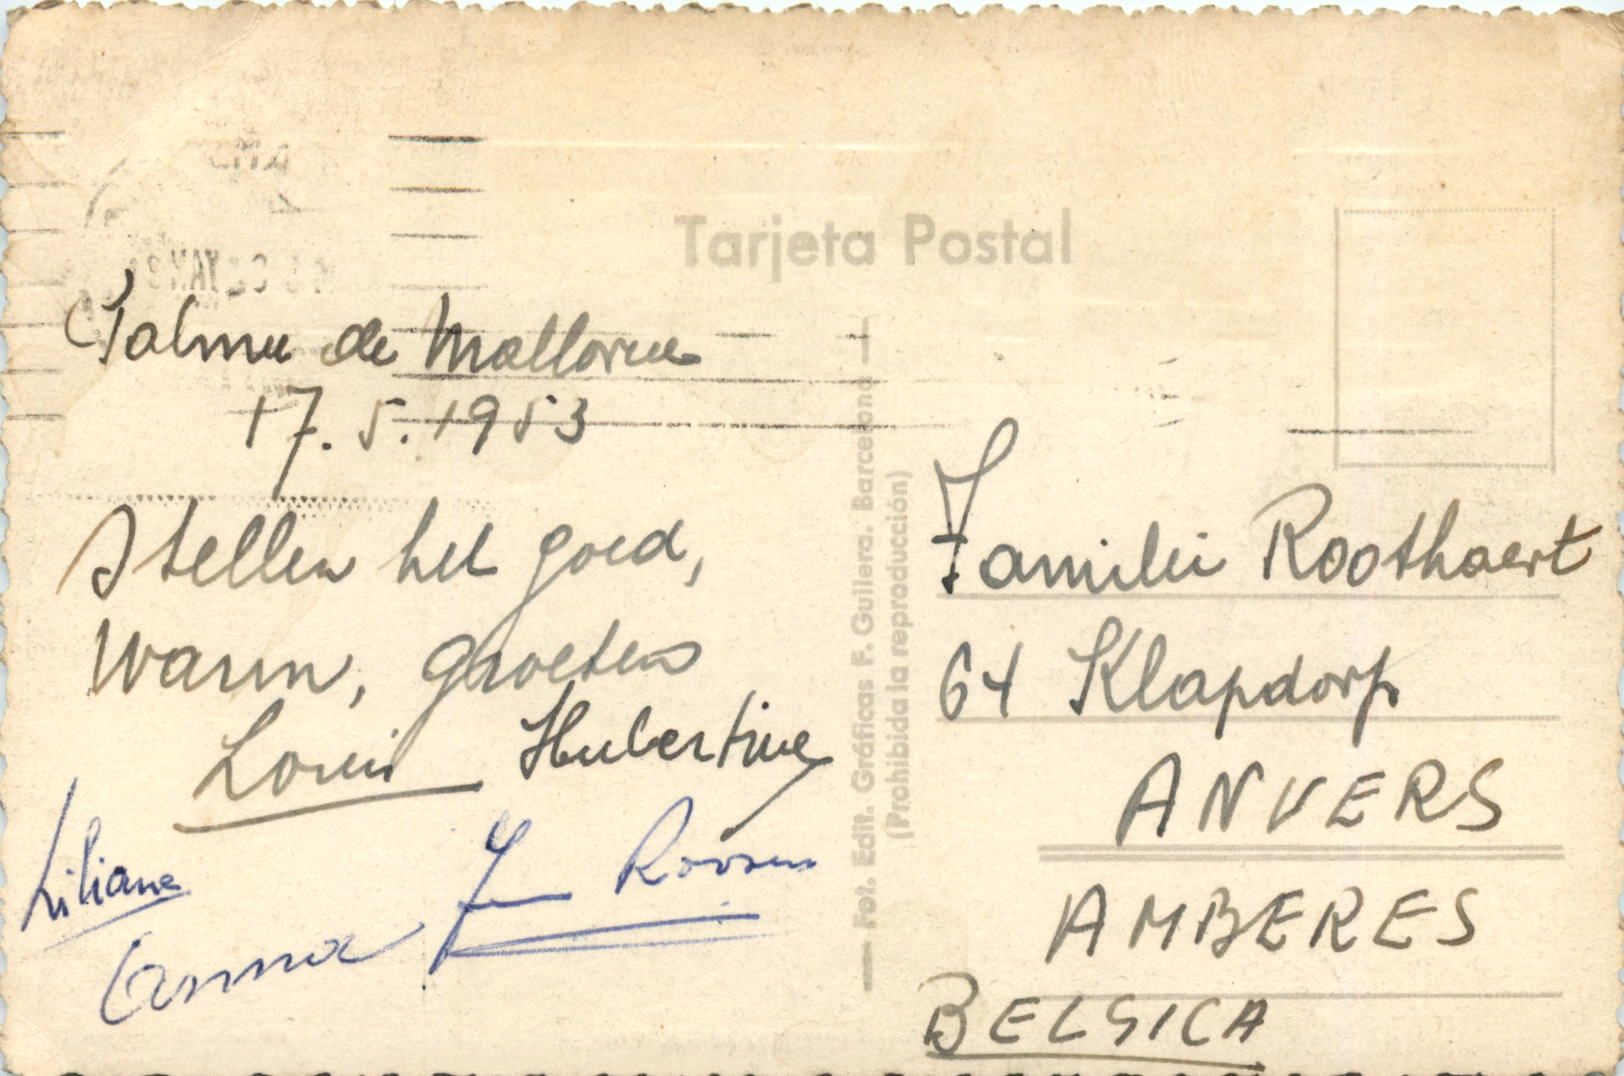 Tarjeta Postal
Palma de Mallorca
17.5.1953
Stellen het goed,
Warm, groeten
Louis Hubertine
Liliane
Anna Roosen
Fot. Edit. Gráficas F. Guilera. Barcelona
(Prohibida la reproducción)
Familie Roothaert
64 Klapdorp
ANVERS
AMBERES
BELGICA